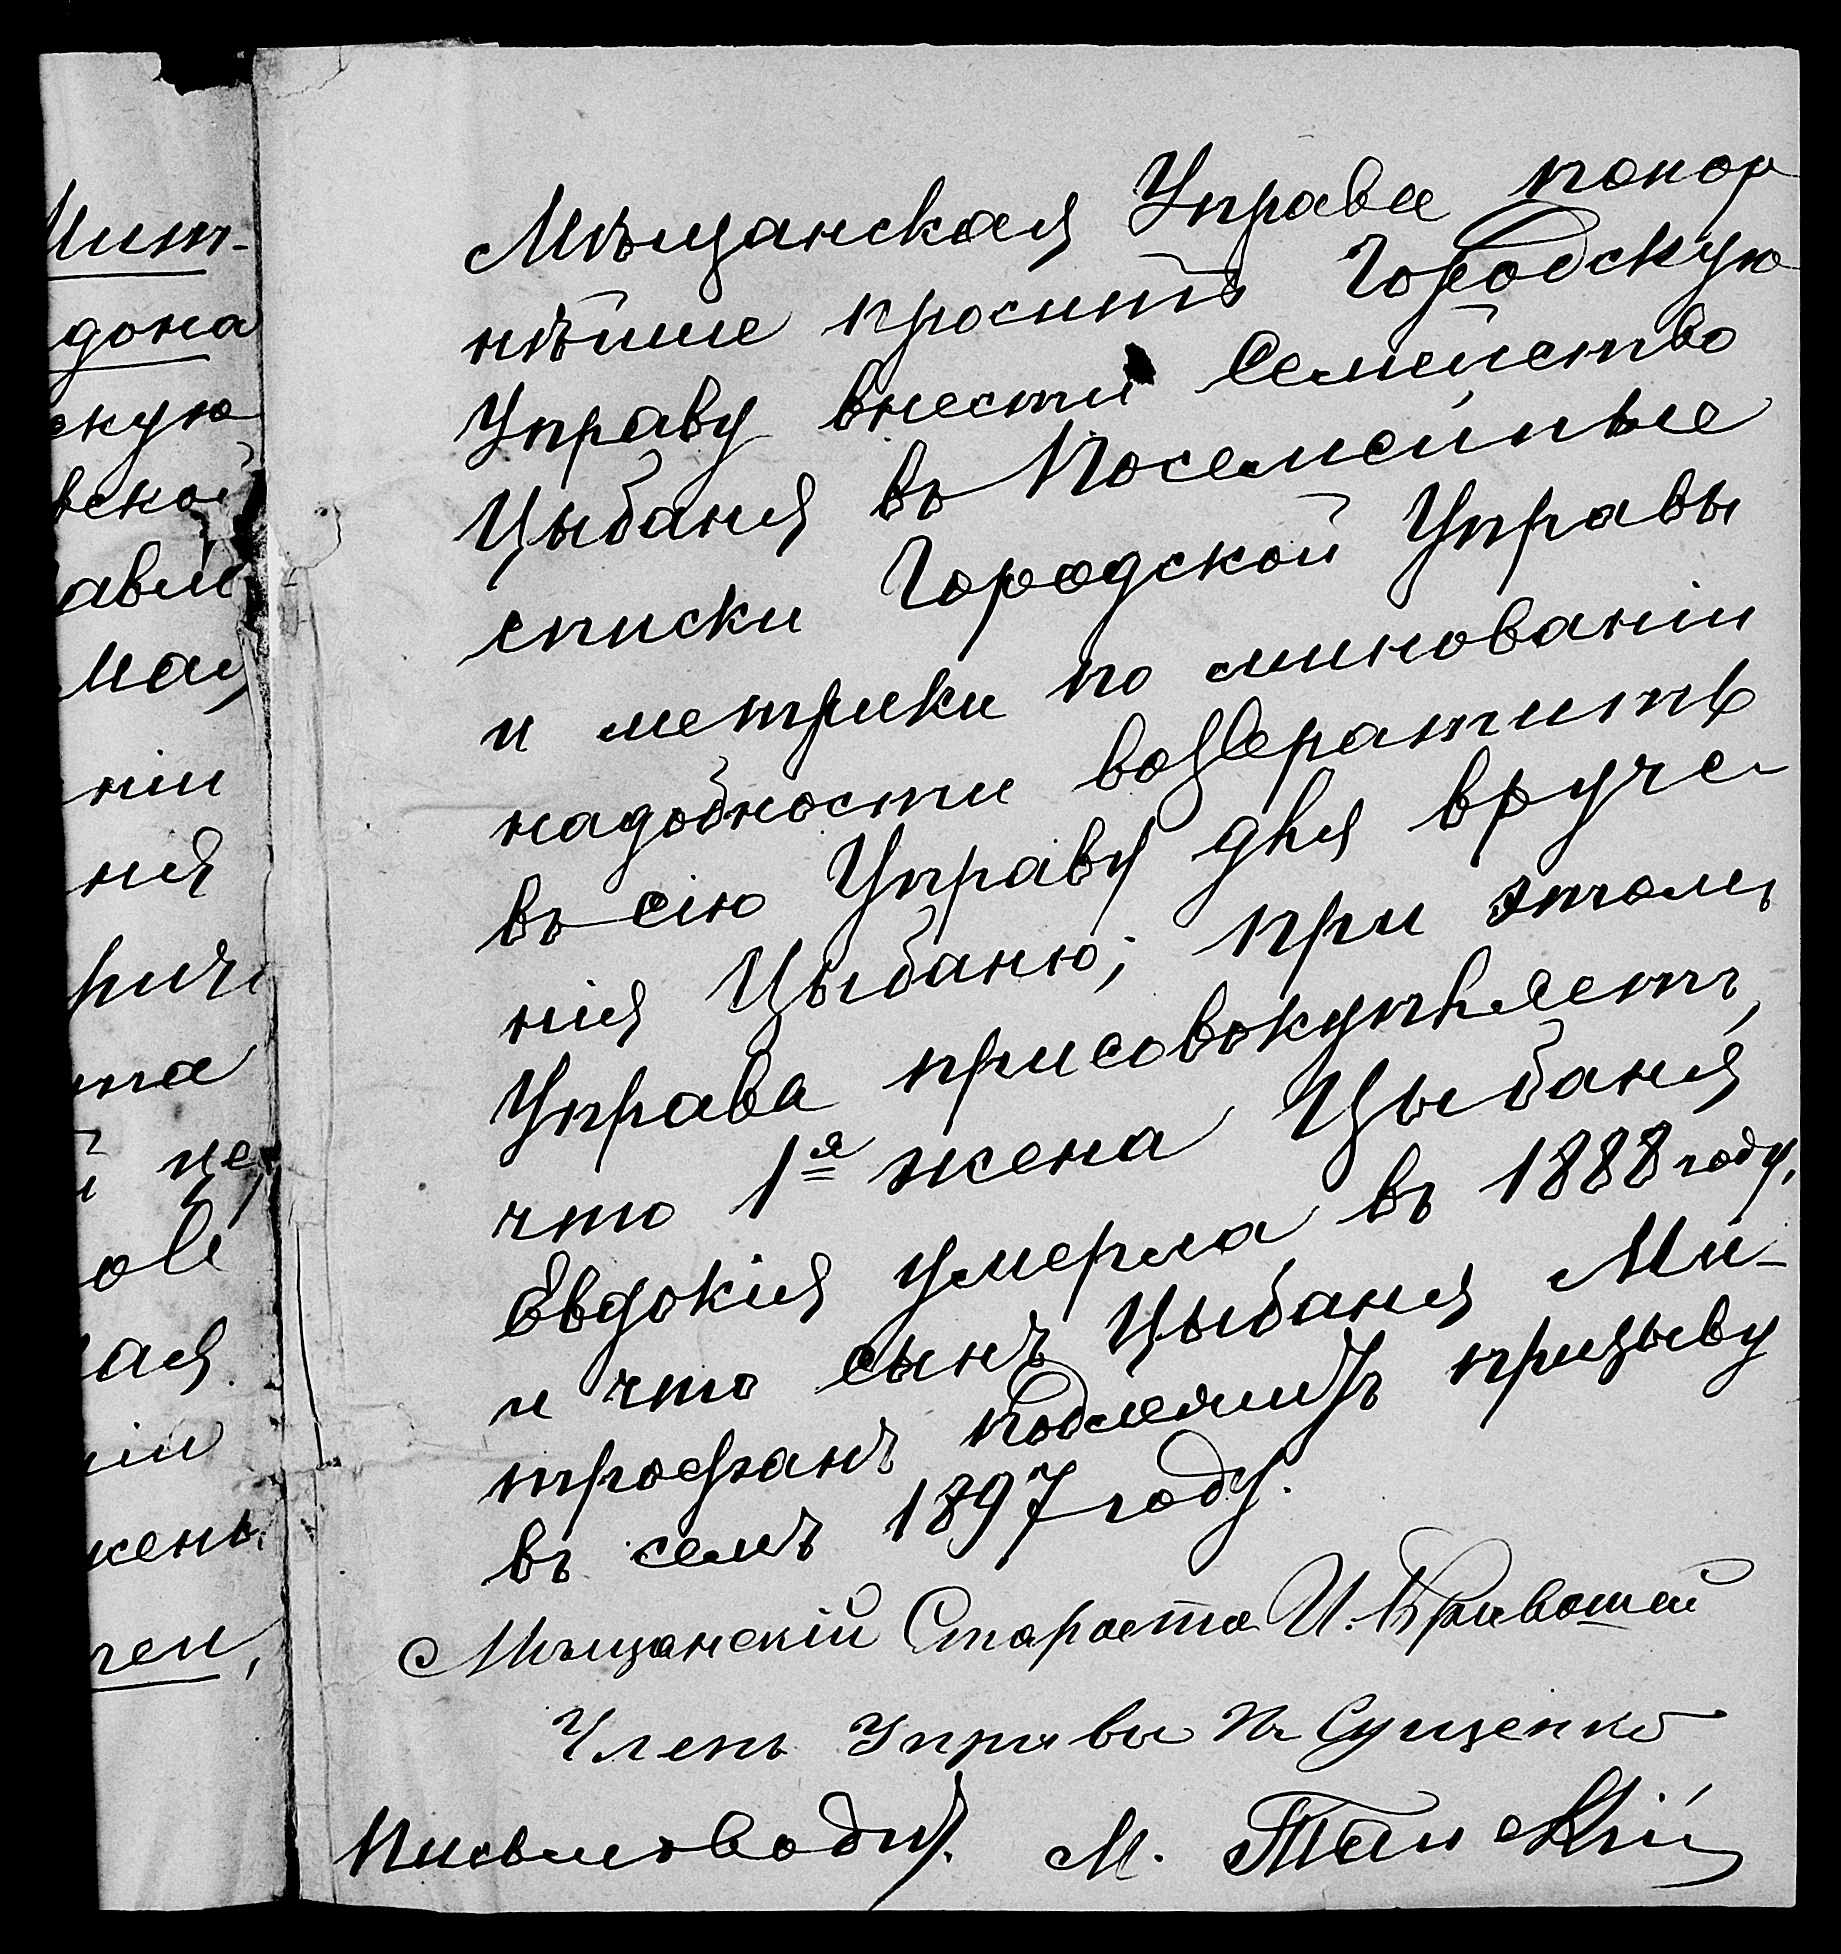 Мит-
дона
скую
вской
авле
мая
ніи
ній
ричо
та
й це
ове
ая
ніи
жень
чен,
Мѣщанская Управа покор
нѣйше проситъ Городскую
Управу внести Семейство
Цыбаня въ Посемейные
списки Городской Управы
и метрики по минованіи
надобности возвератить
въ сію Управу для вруче-
нія Цыбаню; при этомъ
Управа присовокупляетъ,
что 1я жена Цыбаня
Евдокія умерла въ 1888 году,
и что сынъ Цыбаня Ми-
трофанъ подлежитъ призыву
въ семъ 1897 году.
Мѣщанскій Староста И. Кривошей
Членъ Управы Сущенко
Письмоводит. М.